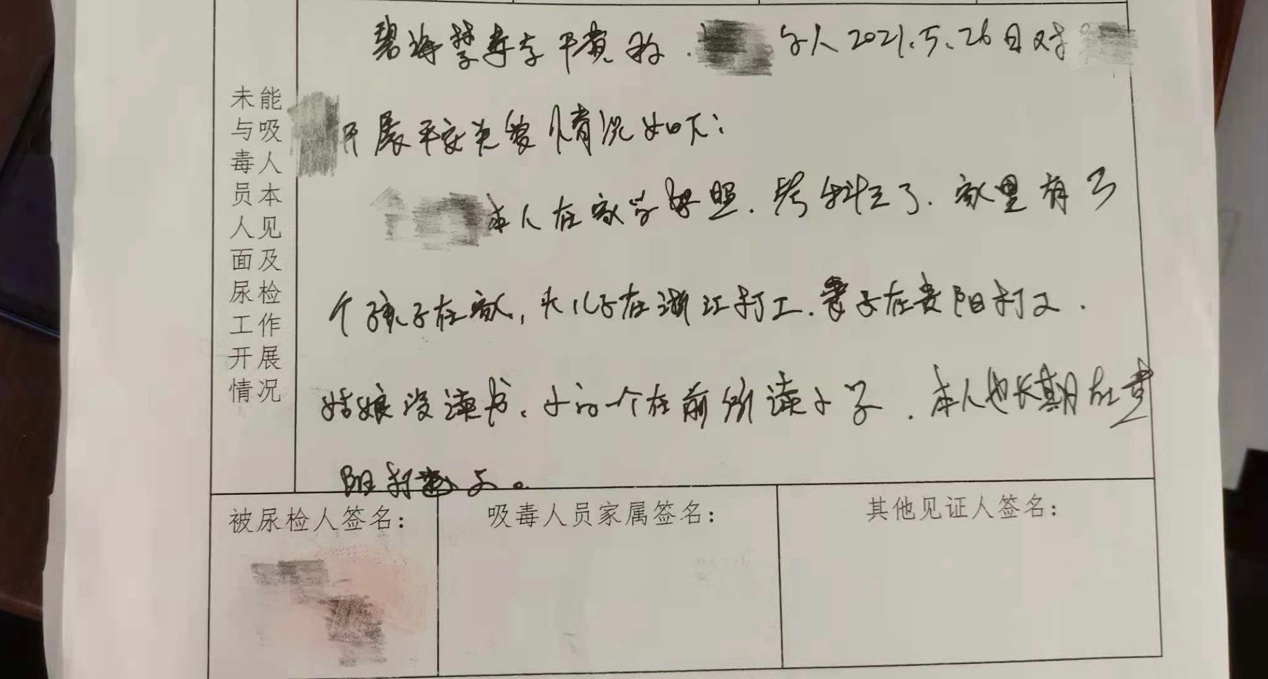 未能与吸毒人员本人见面及尿检工作开展情况
碧海禁毒专干袁 2021.5.26日对
开展平安关爱情况如下:
本人在家学驾照,科三了,家里有3
个孩子在家,大儿子在浙江打工,妻子在贵阳打工.
姑娘没读书,小的一个在前所读小学,本人也长期在贵
阳打工。
被尿检人签名:
吸毒人员家属签名:
其他见证人签名: